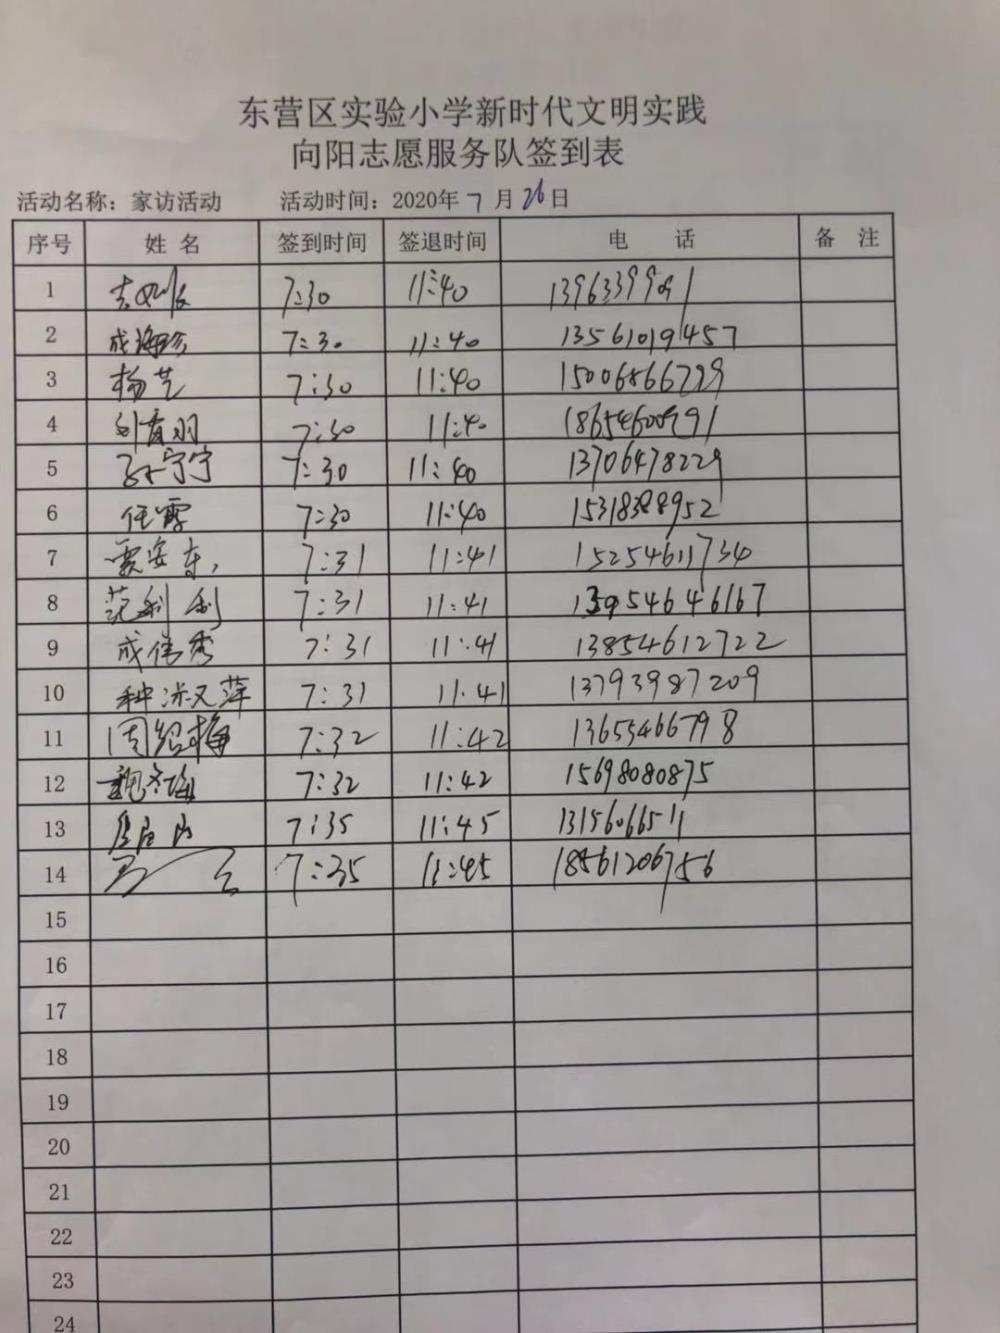 东营区实验小学新时代文明实践
向阳志愿服务队签到表
活动名称：家访活动 活动时间：2020年 7 月 26 日
序号 姓名 签到时间 签退时间 电话 备注
1 7:30 11:40
2 成海珍 7:30 11:40 13561019457
3 杨艺 7:30 11:40 15006866799
4 刘育羽 7:30 11:40 18654600991
5 孙宁宁 7:30 11:40 13706478229
6 任霞 7:30 11:40 15318388952
7 贾安东 7:31 11:41 15254611734
8 范利利 7:31 11:41 13954646167
9 成传秀 7:31 11:41 13854612722
10 7:31 11:41 13793987209
11 周绍梅 7:32 11:42 13655466798
12 魏冬梅 7:32 11:42 15698080875
13 7:35 11:45 13156066511
14 7:35 11:45 18561206756
15
16
17
18
19
20
21
22
23
24